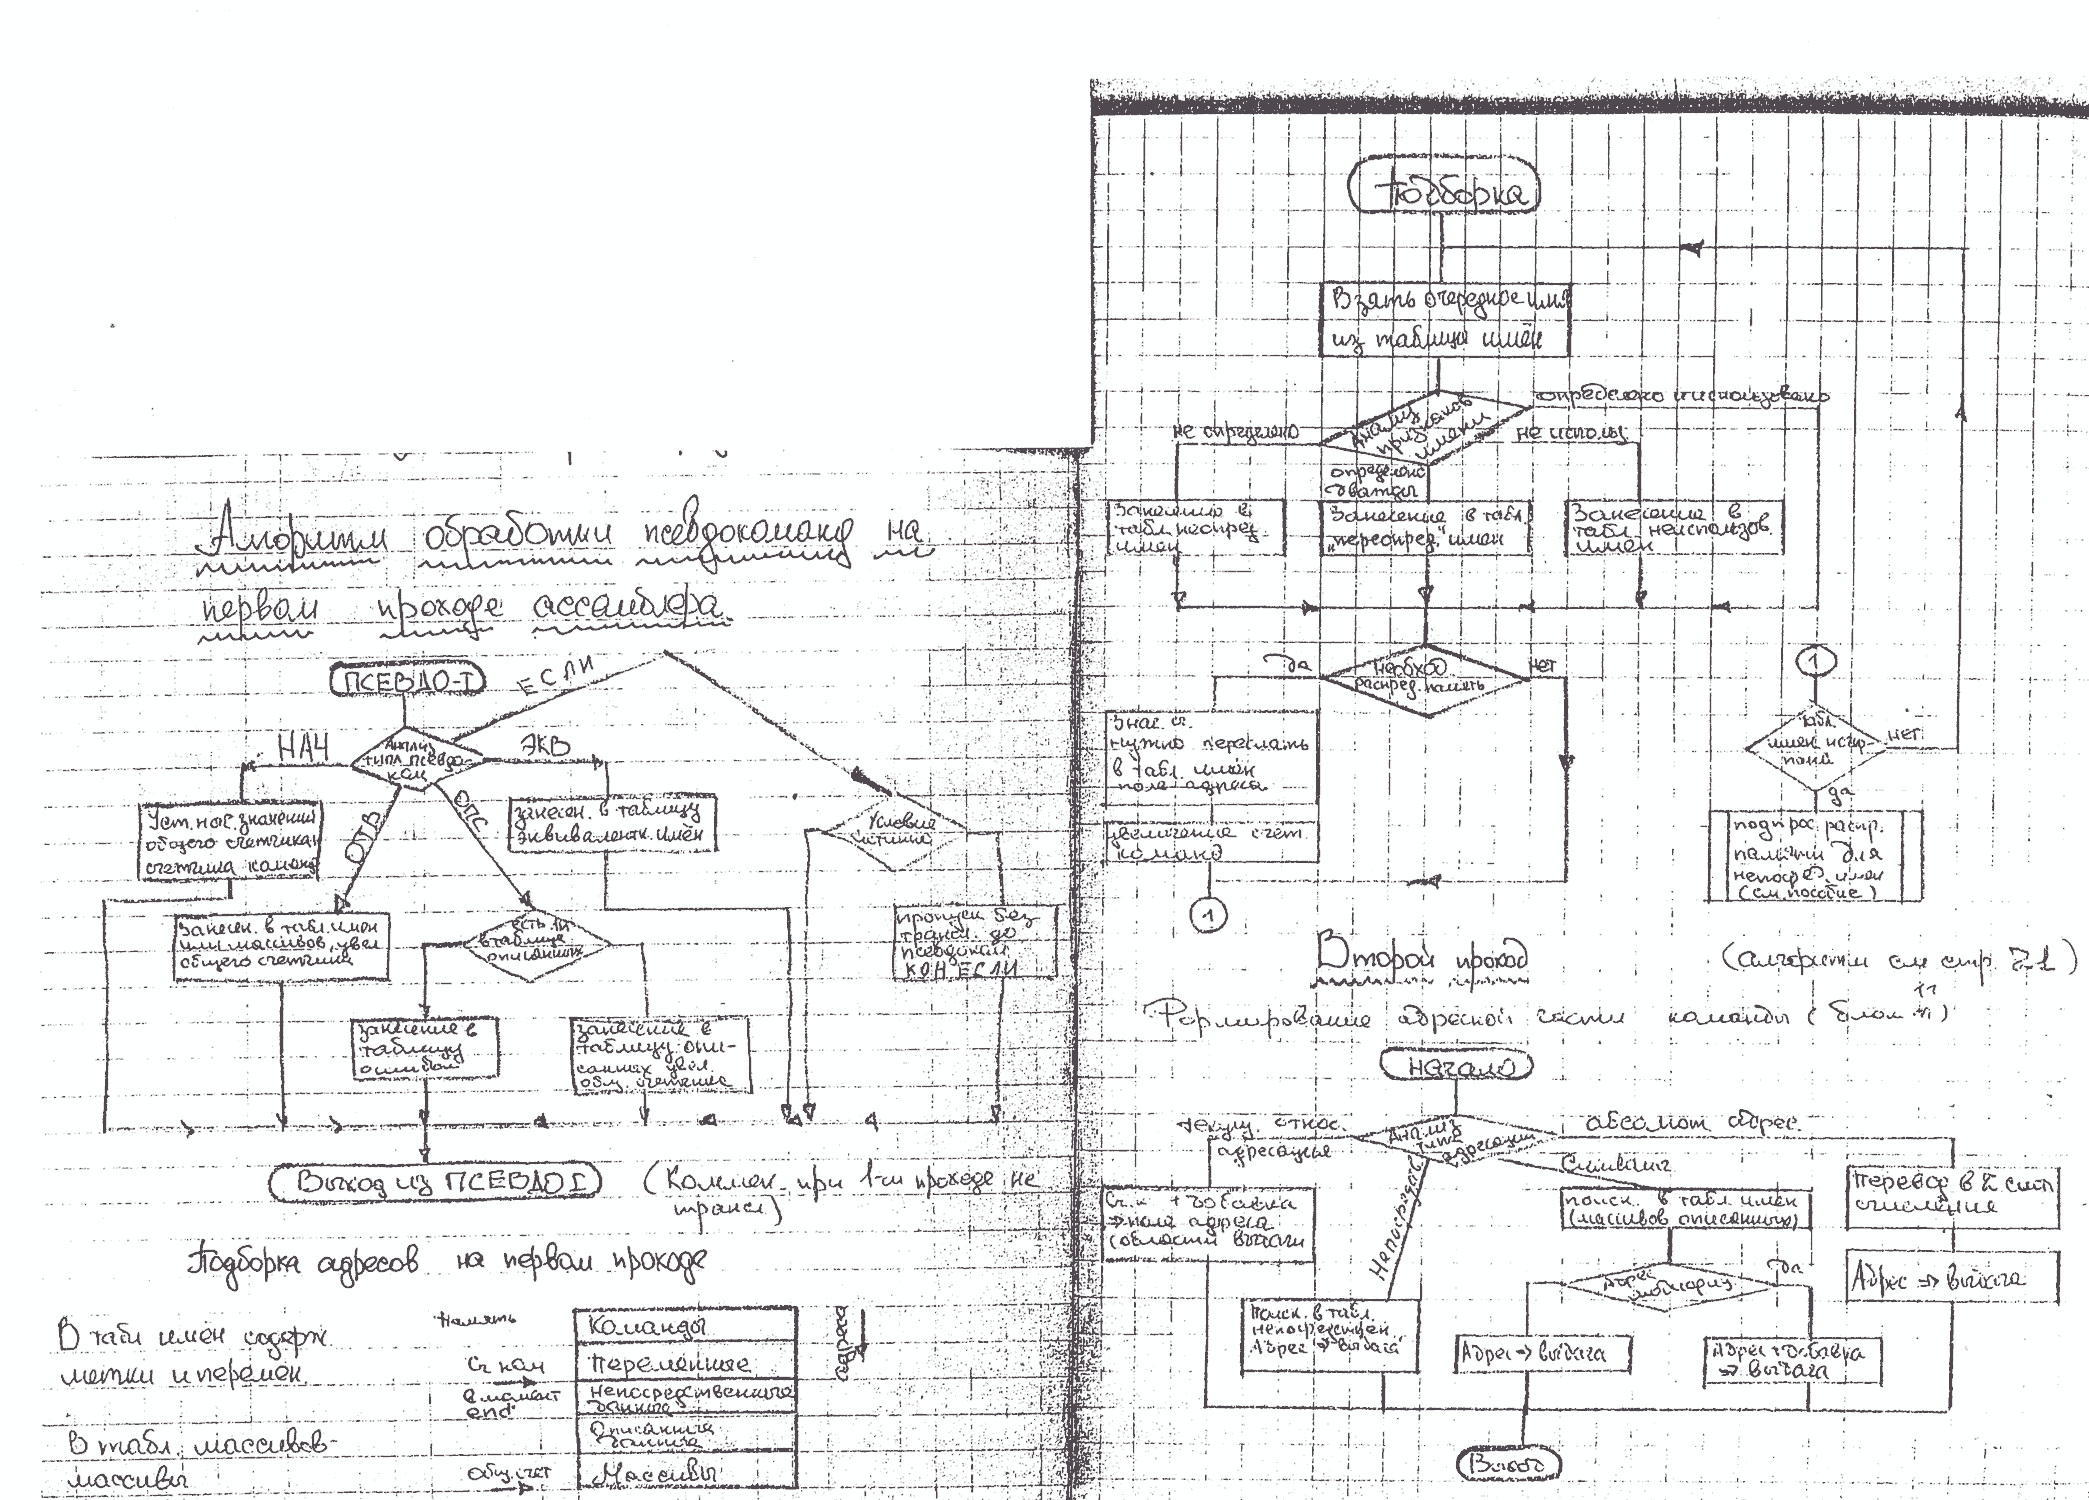 Алгоритм обработки псевдокоманд на
первом проходе ассемблера
ПСЕВДО-I
ЕСЛИ
НАЧ
Анализ
типа псевдо-
ком
ЭКВ
ОТВ
ОПС
Уст. нач. значений
общего счетчика и
счетчика команд
занесен. в таблицу
эквивалентн. имён
Условие
истинно
Занесен. в табл. имен
или массивов, увел
общего счетчика
есть ли
в таблице
описанных
пропуск без
трансл. до
псевдоком.
КОН ЕСЛИ
занесение в
таблицу
ошибок
занесение в
таблицу опи-
санных увел.
общ. счетчика
Выход из ПСЕВДО I
(Коммен. при 1-м проходе не
трансл)
Подборка адресов на первом проходе
В табл имён содерж.
метки и перемен.
В табл. массивов-
массивы
Память
Сч ком
в момент
end.
Общ. счет
Команды
Переменные
Непосредственные
данные
Описанные
данные
Массивы
адреса
Подборка
Взять очередное имя
из таблицы имён
Анализ
признаков
имени
определено и использовано
не определено
не использ.
определено
дважды
Занесение в
табл. неопред.
имен
Занесение в табл.
"переопред." имен
Занесение в
табл. неиспользов.
имён
Необход.
распред. память
да
нет
Знач. сч.
нужно переслать
в табл. имён
поле адреса
увеличение счет.
команд
1
1
Табл.
имен исчер-
пана
нет
да
подпрог. распр.
памяти для
непосред. имен
(см. пособие)
Второй проход
(алгоритм см стр. 21)
Формирование адресной части команды (блок 11)
11
Начало
Анализ
типа
адресации
текущ. относ.
адресация
абсолют адрес.
Символич.
Непосредств.
Сч. к + добавка
⇒ поле адреса
(области выдачи)
поиск. в табл. имен
(массивов, описанных)
Перевод в 2 сист
счисления
Адрес ⇒ выдача
Адрес
модифиц
да
Поиск. в табл.
непосредствен.
Адрес ⇒ выдача
Адрес ⇒ выдача
Адрес + добавка
⇒ выдача
Выход